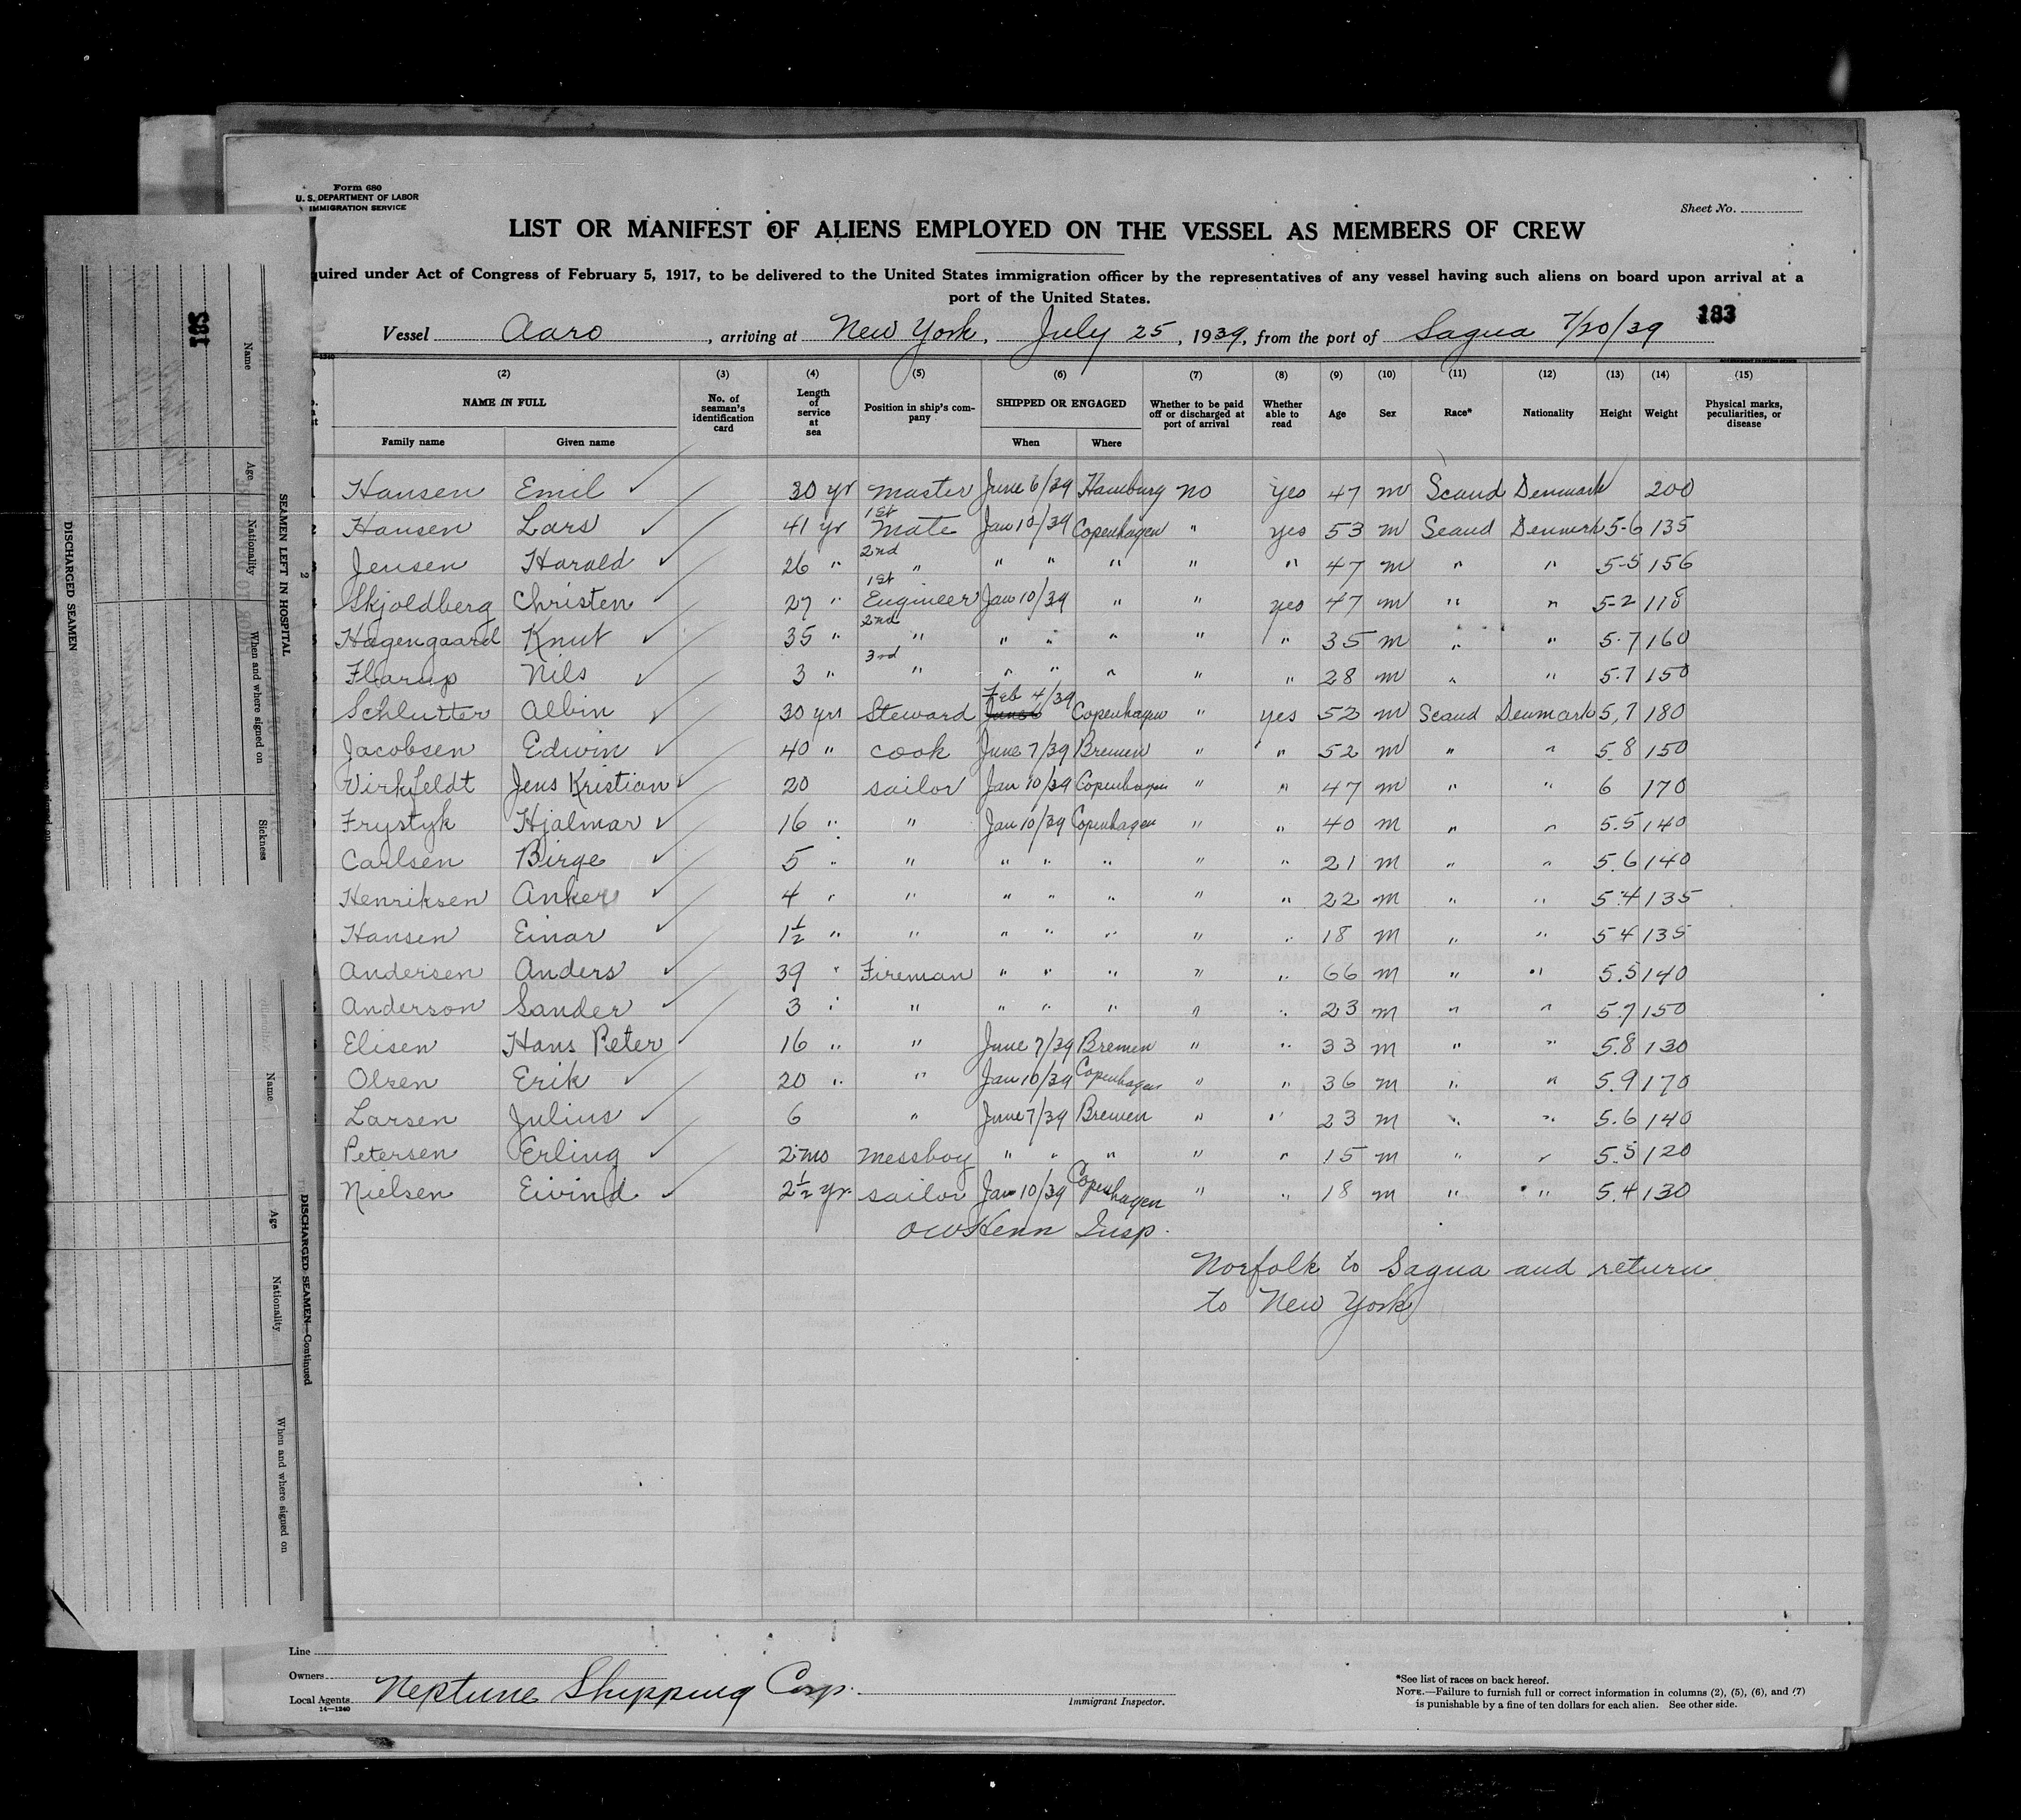 Form 680
U. S. DEPARTMENT OF LABOR
IMMIGRATION SERVICE
Sheet No.
LIST OR MANIFEST OF ALIENS EMPLOYED ON THE VESSEL AS MEMBERS OF CREW
quired under Act of Congress of February 5, 1917, to be delivered to the United States immigration officer by the representatives of any vessel having such aliens on board upon arrival at a
port of the United States.
183
Vessel Aaro, arriving at New York, July 25, 1939, from the port of Sagua 7/20/39
(2) (3) (4) (5) (6) (7) (8) (9) (10) (11) (12) (13) (14) (15)
NAME IN FULL No. of seaman's identification card Length of service at sea Position in ship's company SHIPPED OR ENGAGED Whether to be paid off or discharged at port of arrival Whether able to read Age Sex Race* Nationality Height Weight Physical marks, peculiarities, or disease
Family name Given name When Where
Hansen Emil ✓ 30 yr Master June 6/39 Hamburg no yes 47 m Scand Denmark 200
Hansen Lars ✓ 41 yr 1st Mate Jan 10/39 Copenhagen " yes 53 m Scand Denmark 5-6 135
Jensen Harald ✓ 26 " 2nd " " " " " " 47 m " " 5-5 156
Skjoldberg Christen ✓ 27 " 1st Engineer Jan 10/39 " " yes 47 m " " 5-2 118
Hagengaard Knut ✓ 35 " 2nd " " " " " " 35 m " " 5.7 160
Flarup Nils ✓ 3 " 3rd " " " " " " 28 m " " 5.7 150
Schlutter Albin ✓ 30 yrs Steward Feb 4/39 Copenhagen " yes 52 m Scand Denmark 5,7 180
Jacobsen Edwin ✓ 40 " cook June 7/39 Bremen " " 52 m " " 5 8 150
Virkfeldt Jens Kristian ✓ 20 sailor Jan 10/39 Copenhagen " " 47 m " " 6 170
Frystyk Hjalmar ✓ 16 " " Jan 10/39 Copenhagen " " 40 m " " 5.5 140
Carlsen Birge ✓ 5 " " " " " " " 21 m " " 5.6 140
Henriksen Anker ✓ 4 " " " " " " " 22 m " " 5.4 135
Hansen Einar ✓ 1½ " " " " " " " 18 m " " 5 4 135
Andersen Anders ✓ 39 " Fireman " " " " " 66 m " " 5.5 140
Anderson Sander ✓ 3 " " " " " " " 23 m " " 5.7 150
Elisen Hans Peter ✓ 16 " " June 7/39 Bremen " " 33 m " " 5.8 130
Olsen Erik ✓ 20 " " Jan 10/39 Copenhagen " " 36 m " " 5.9 170
Larsen Julius ✓ 6 " June 7/39 Bremen " " 23 m " " 5.6 140
Petersen Erling ✓ 2 mo messboy " " " " " 15 m " " 5.5 120
Nielsen Eivind ✓ 2½ yr. sailor Jan 10/39 Copenhagen " " 18 m " " 5.4 130
OWHenn Insp.
Norfolk to Sagua and return
to New York
Line
Owners
Local Agents Neptune Shipping Corp.
14—1240
Immigrant Inspector.
*See list of races on back hereof.
NOTE.—Failure to furnish full or correct information in columns (2), (5), (6), and (7)
is punishable by a fine of ten dollars for each alien. See other side.
183
SEAMEN LEFT IN HOSPITAL
2
Name
Age
Nationality
When and where signed on
Sickness
DISCHARGED SEAMEN
DISCHARGED SEAMEN—Continued
Name
Age
Nationality
When and where signed on